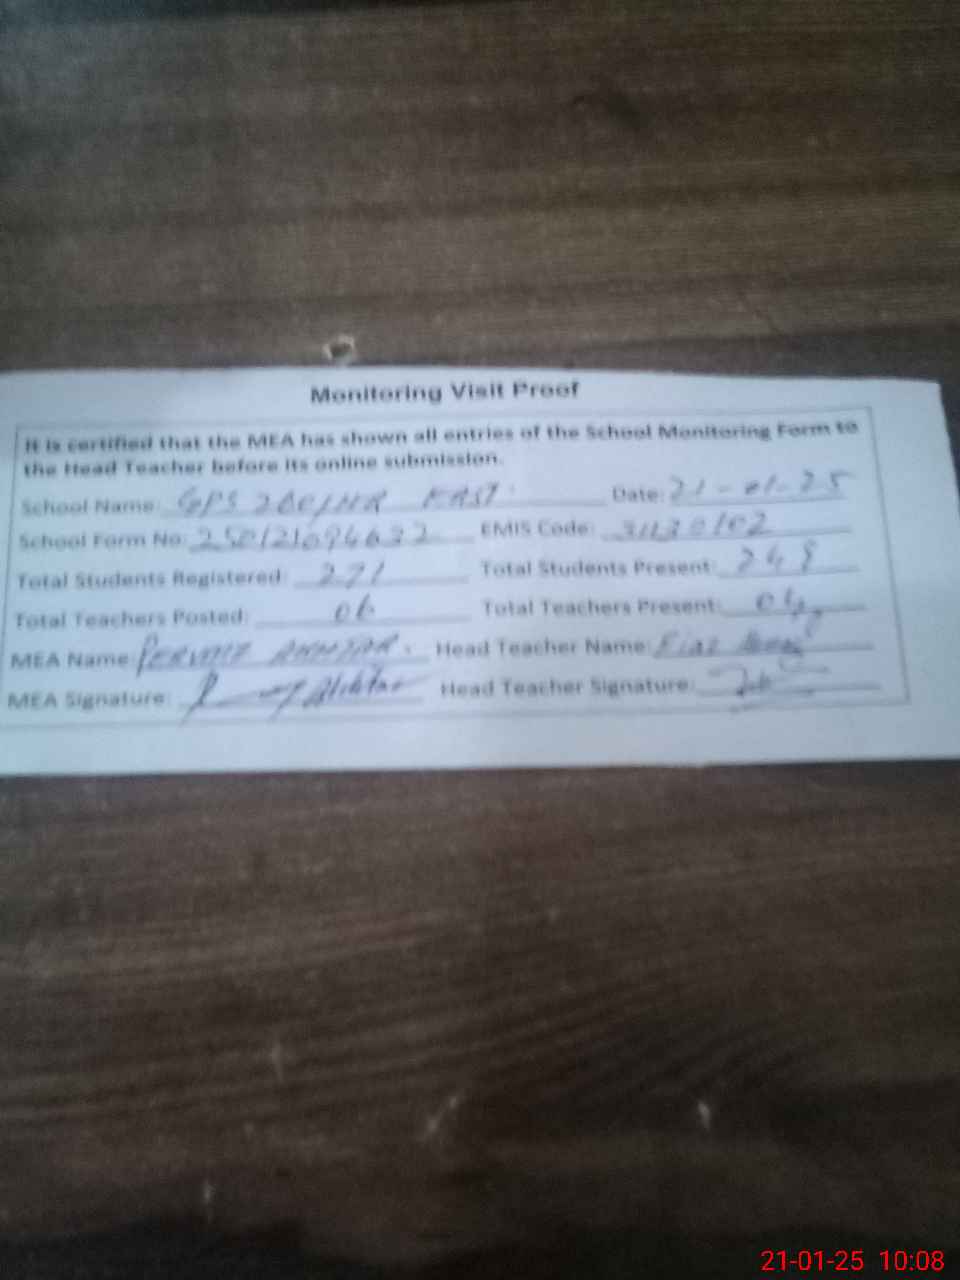 Monitoring Visit Proof
It is certified that the MEA has shown all entries of the School Monitoring Form to
the Head Teacher before its online submission.
School Name: GPS EAST Date: 21-01-25
School Form No: 250121094632 EMIS Code: 31130102
Total Students Registered: 271 Total Students Present: 248
Total Teachers Posted: 06 Total Teachers Present: 04
MEA Name: PERVAIZ AKHTAR. Head Teacher Name: Fiaz
MEA Signature: Akhtar Head Teacher Signature:
21-01-25 10:08